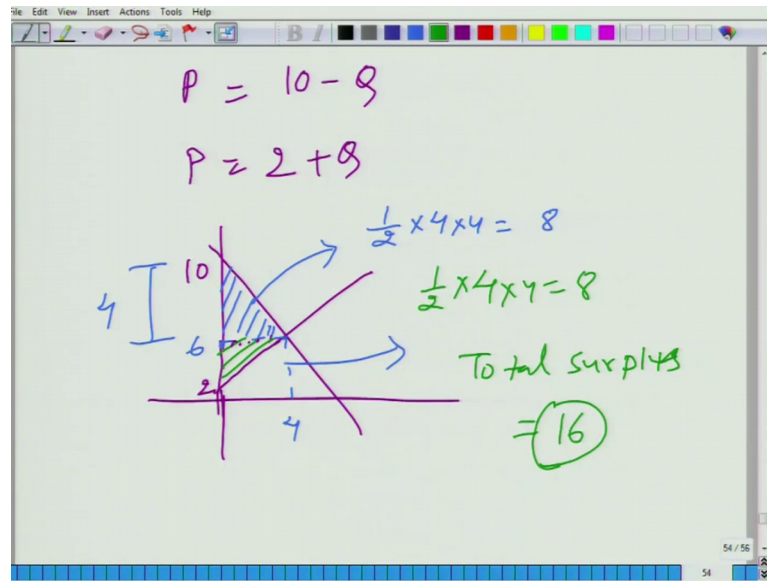 File Edit View Insert Actions Tools Help
B I
P = 10 - Q
P = 2 + Q
1/2 × 4 × 4 = 8
10
1/2 × 4 × 4 = 8
4
6
Total surplus
2
4
= 16
54 / 56
54